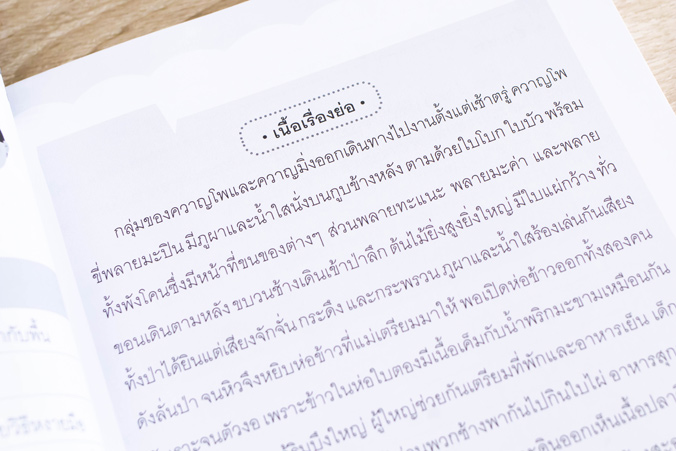 • เนื้อเรื่องย่อ •
กลุ่มของควาญโพและควาญมิ่งออกเดินทางไปงานตั้งแต่เช้าตรู่ ควาญโพ
ขี่พลายมะปิน มีภูผาและน้ำใสนั่งบนกูบข้างหลัง ตามด้วยใบโบก ใบบัว พร้อม
ทั้งพังโคนซึ่งมีหน้าที่ขนของต่างๆ ส่วนพลายทะแนะ พลายมะค่า และพลาย
ขอนเดินตามหลัง ขบวนช้างเดินเข้าป่าลึก ต้นไม้ยิ่งสูงยิ่งใหญ่ มีใบแผ่กว้าง ทั่ว
ทั้งป่าได้ยินแต่เสียงจักจั่น กระดึง และกระพรวน ภูผาและน้ำใสร้องเล่นกันเสียง
ดังลั่นป่า จนหิวจึงหยิบห่อข้าวที่แม่เตรียมมาให้ พอเปิดห่อข้าวออกทั้งสองคน
หัวเราะจนตัวงอ เพราะข้าวในห่อใบตองมีเนื้อเค็มกับน้ำพริกมะขามเหมือนกัน
บึงใหญ่ ผู้ใหญ่ช่วยกันเตรียมที่พักและอาหารเย็น เด็ก
พวกช้างพากันไปกินใบไผ่ อาหารสุก
ออกเห็นเนื้อปลา
ากับพื้น